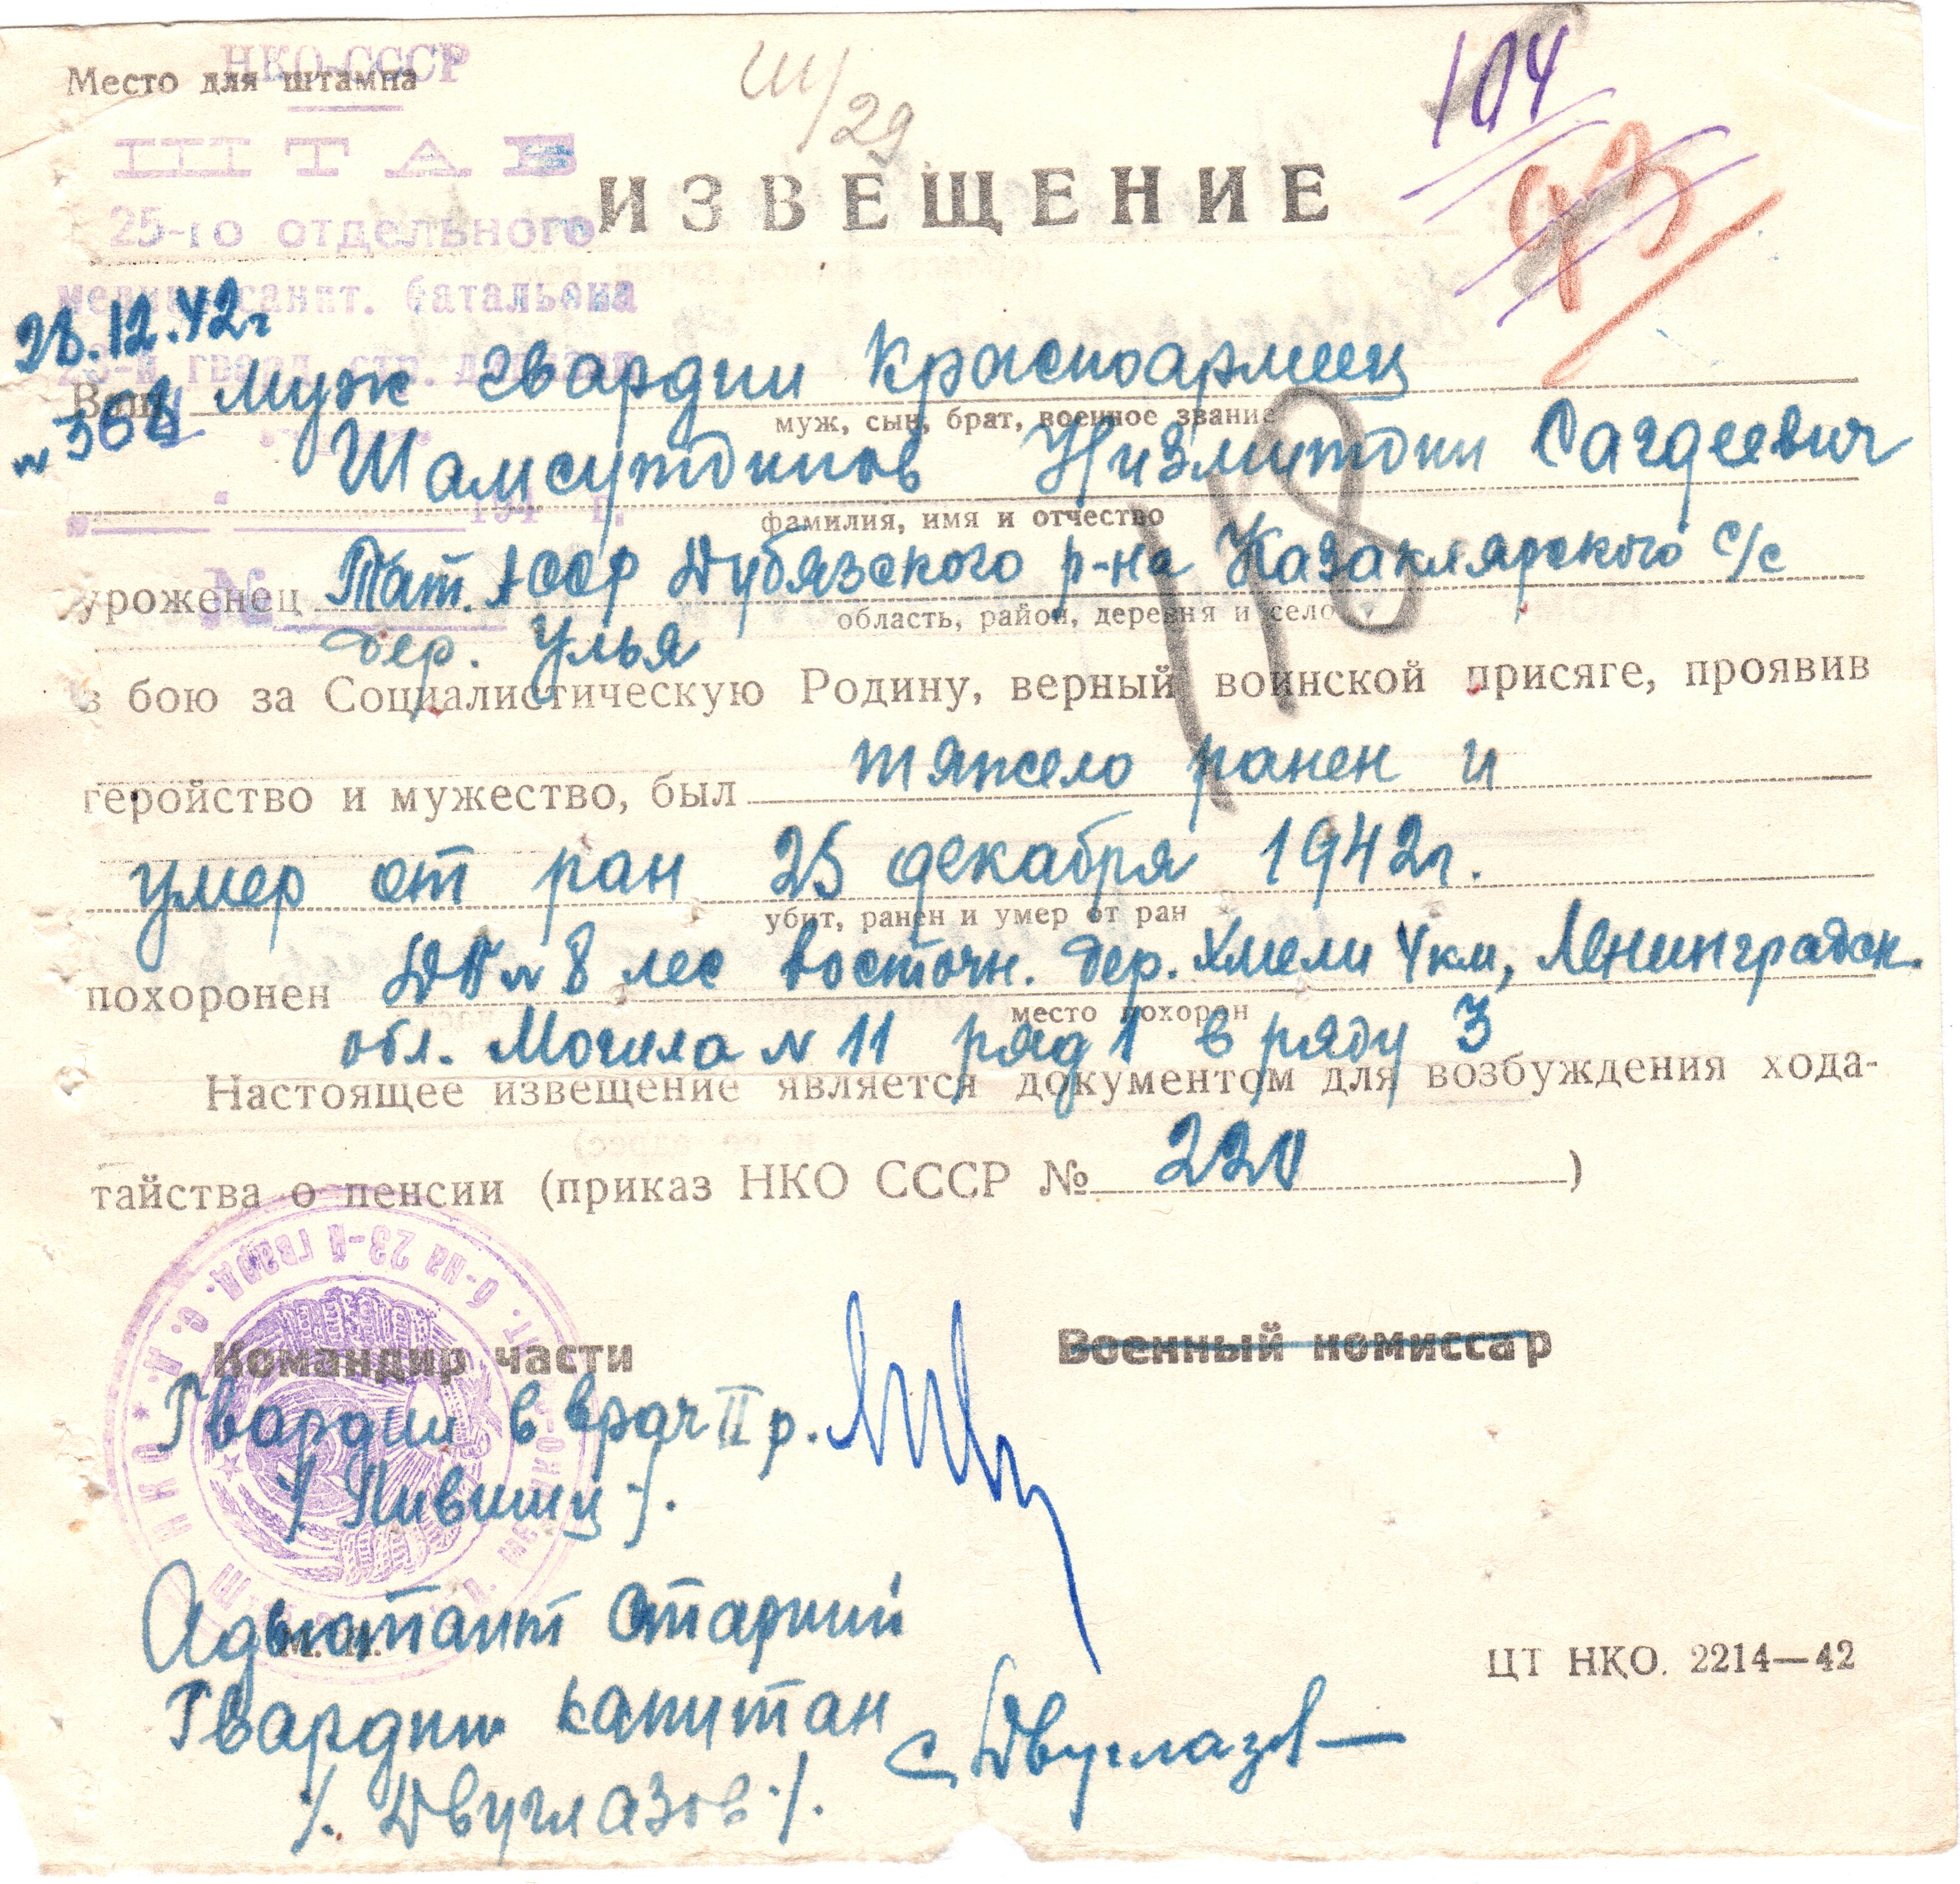 Место для штампа
НКО-СССР
Ш/29
104
93
ШТАБ
ИЗВЕЩЕНИЕ
25-го отдельного
медико-санит. батальона
28.12.42г
23-й гвард. стр. дивизии
Ваш Муж гвардии Красноармеец
муж, сын, брат, военное звание
№ 368
Шамсутдинов Низмутдин Сагдеевич
194 г.
фамилия, имя и отчество
уроженец Тат. АССР Дубязского р-на Казаклярского с/с
№
область, район, деревня и село
дер. Улья
18
в бою за Социалистическую Родину, верный воинской присяге, проявив
геройство и мужество, был тяжело ранен и
умер от ран 25 декабря 1942г.
убит, ранен и умер от ран
похоронен ДП № 8 лес восточн. дер. Хмели 4 км, Ленинградск.
место похорон
обл. Могила № 11 ряд 1 в ряду 3
Настоящее извещение является документом для возбуждения хода-
тайства о пенсии (приказ НКО СССР № 220)
Командир части
Военный комиссар
Гвардии в врач II р.
Адъютант старший
М. П.
ЦТ НКО. 2214—42
Гвардии капитан Двуглазов
/. Двуглазов ./.